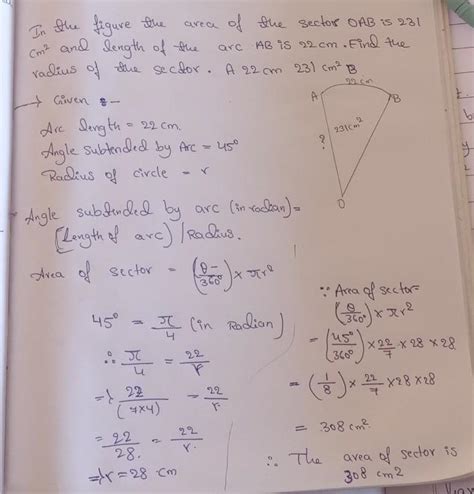 In the figure the area of the sector OAB is 231
cm² and length of the arc AB is 22 cm. Find the
radius of the sector. A 22 cm 231 cm² B
→ Given :-
Arc length = 22 cm.
Angle subtended by Arc = 45°
Radius of circle = r
22 cm
A
B
231 cm²
?
O
Angle subtended by arc (in radian) =
(Length of arc) / Radius.
Area of sector = (θ/360°) × πr²
45° = π/4 (in Radian)
∴ π/4 = 22/r
=> 22/(7×4) = 22/r
= 22/28 = 22/r.
=> r = 28 cm
∵ Area of sector =
(θ/360°) × πr²
= (45°/360°) × 22/7 × 28 × 28
= (1/8) × 22/7 × 28 × 28
= 308 cm².
∴ The area of sector is
308 cm²